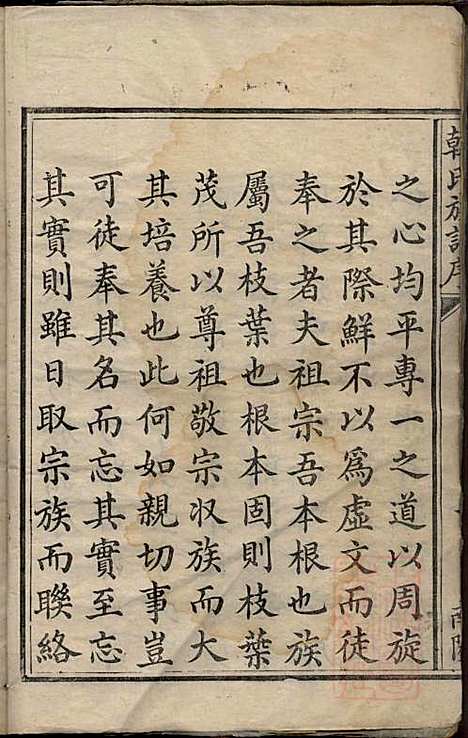 韓氏族譜序
之心均平專一之道以周旋
於其際鮮不以為虛文而徒
奉之者夫祖宗吾本根也族
屬吾枝葉也根本固則枝葉
茂所以尊祖敬宗收族而大
其培養也此何如親切事豈
可徒奉其名而忘其實至忘
其實則雖日取宗族而聯絡